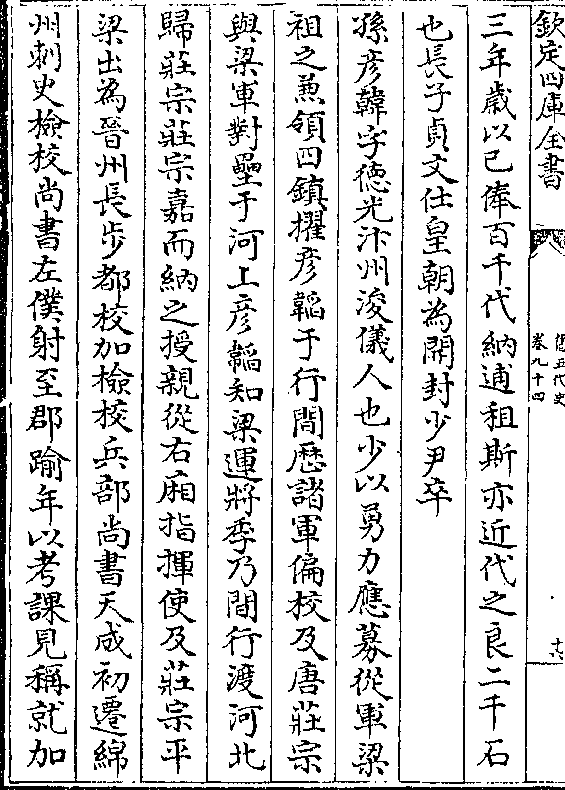 欽定四庫全書
舊五代史
卷九十四
十六
三年歲以己俸百千代納逋租斯亦近代之良二千石
也長子貞文仕皇朝為開封少尹卒
孫彦韓字徳光汴州浚儀人也少以勇力應募從軍梁
祖之兼領四鎮擢彦韜于行間歴諸軍偏校及唐莊宗
與梁軍對壘于河上彦韜知梁運將季乃間行渡河北
歸莊宗莊宗嘉而納之授親從右廂指揮使及莊宗平
梁出為晉州長步都校加檢校兵部尚書天成初遷綿
州刺史檢校尚書左僕射至郡踰年以考課見稱就加